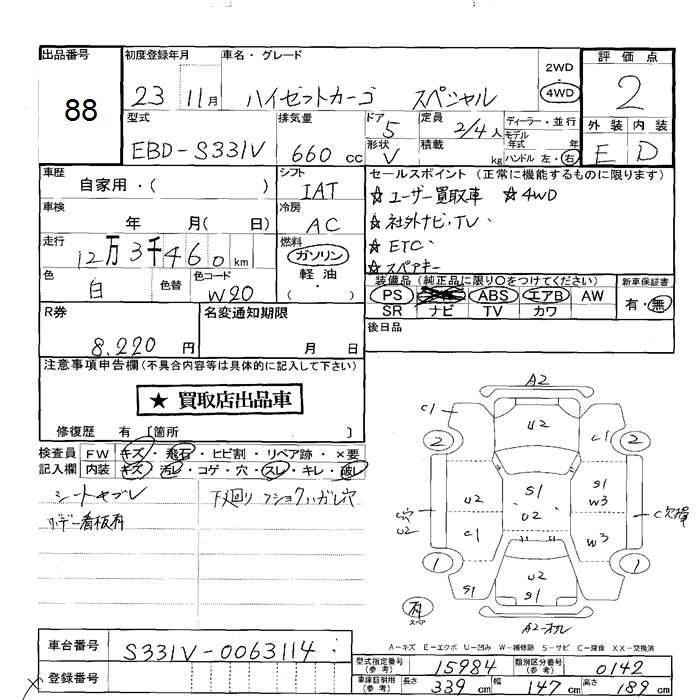 出品番号
88
初度登録年月
23 11月
車名・グレード
ハイゼットカーゴ スペシャル
2WD
・
4WD
評価点
2
外装 内装
E D
型式
EBD-S331V
排気量
660 cc
ドア
5
形状
V
定員
2/4人
積載
kg
ディーラー・並行
モデル
年式 年
ハンドル 左・右
車歴
自家用・( )
シフト
IAT
車検
年 月( 日)
冷房
AC
走行
12万3千460km
燃料
ガソリン
軽油
( ・ )
色
白
色替
色コード
W20
セールスポイント (正常に機能するものに限ります)
☆ユーザー買取車 ☆4WD
☆社外ナビ・TV、
☆ETC、
☆スペアキー
装備品(純正品に限り○をつけてください)
PS ABS エアB AW
SR ナビ TV カワ
新車保証書
有・無
後日品
R券
8,220 円
名変通知期限
月 日
注意事項申告欄(不具合内容等は具体的に記入して下さい)
★ 買取店出品車
修復歴 有 [箇所 ]
検査員
記入欄
FW キズ・飛石・ヒビ割・リペア跡・×要
内装 キズ・汚レ・コゲ・穴・スレ・キレ・破レ
シートヤブレ
下廻り
A2
C1
U2
C1
2
2
U2
S1
S1
W3
U2
C1
W3
U穴
U2
C欠損
1
1
S1
U2
S1
スペア
A2
A-キズ E-エクボ U-凹み W-補修跡 S-サビ C-腐食 XX-交換済
車台番号
S331V-0063114
登録番号
型式指定番号
(参考)
15984
類別区分番号
(参考)
0142
車庫証明用
(参考)
長さ 339cm 幅 147cm 高さ 189cm